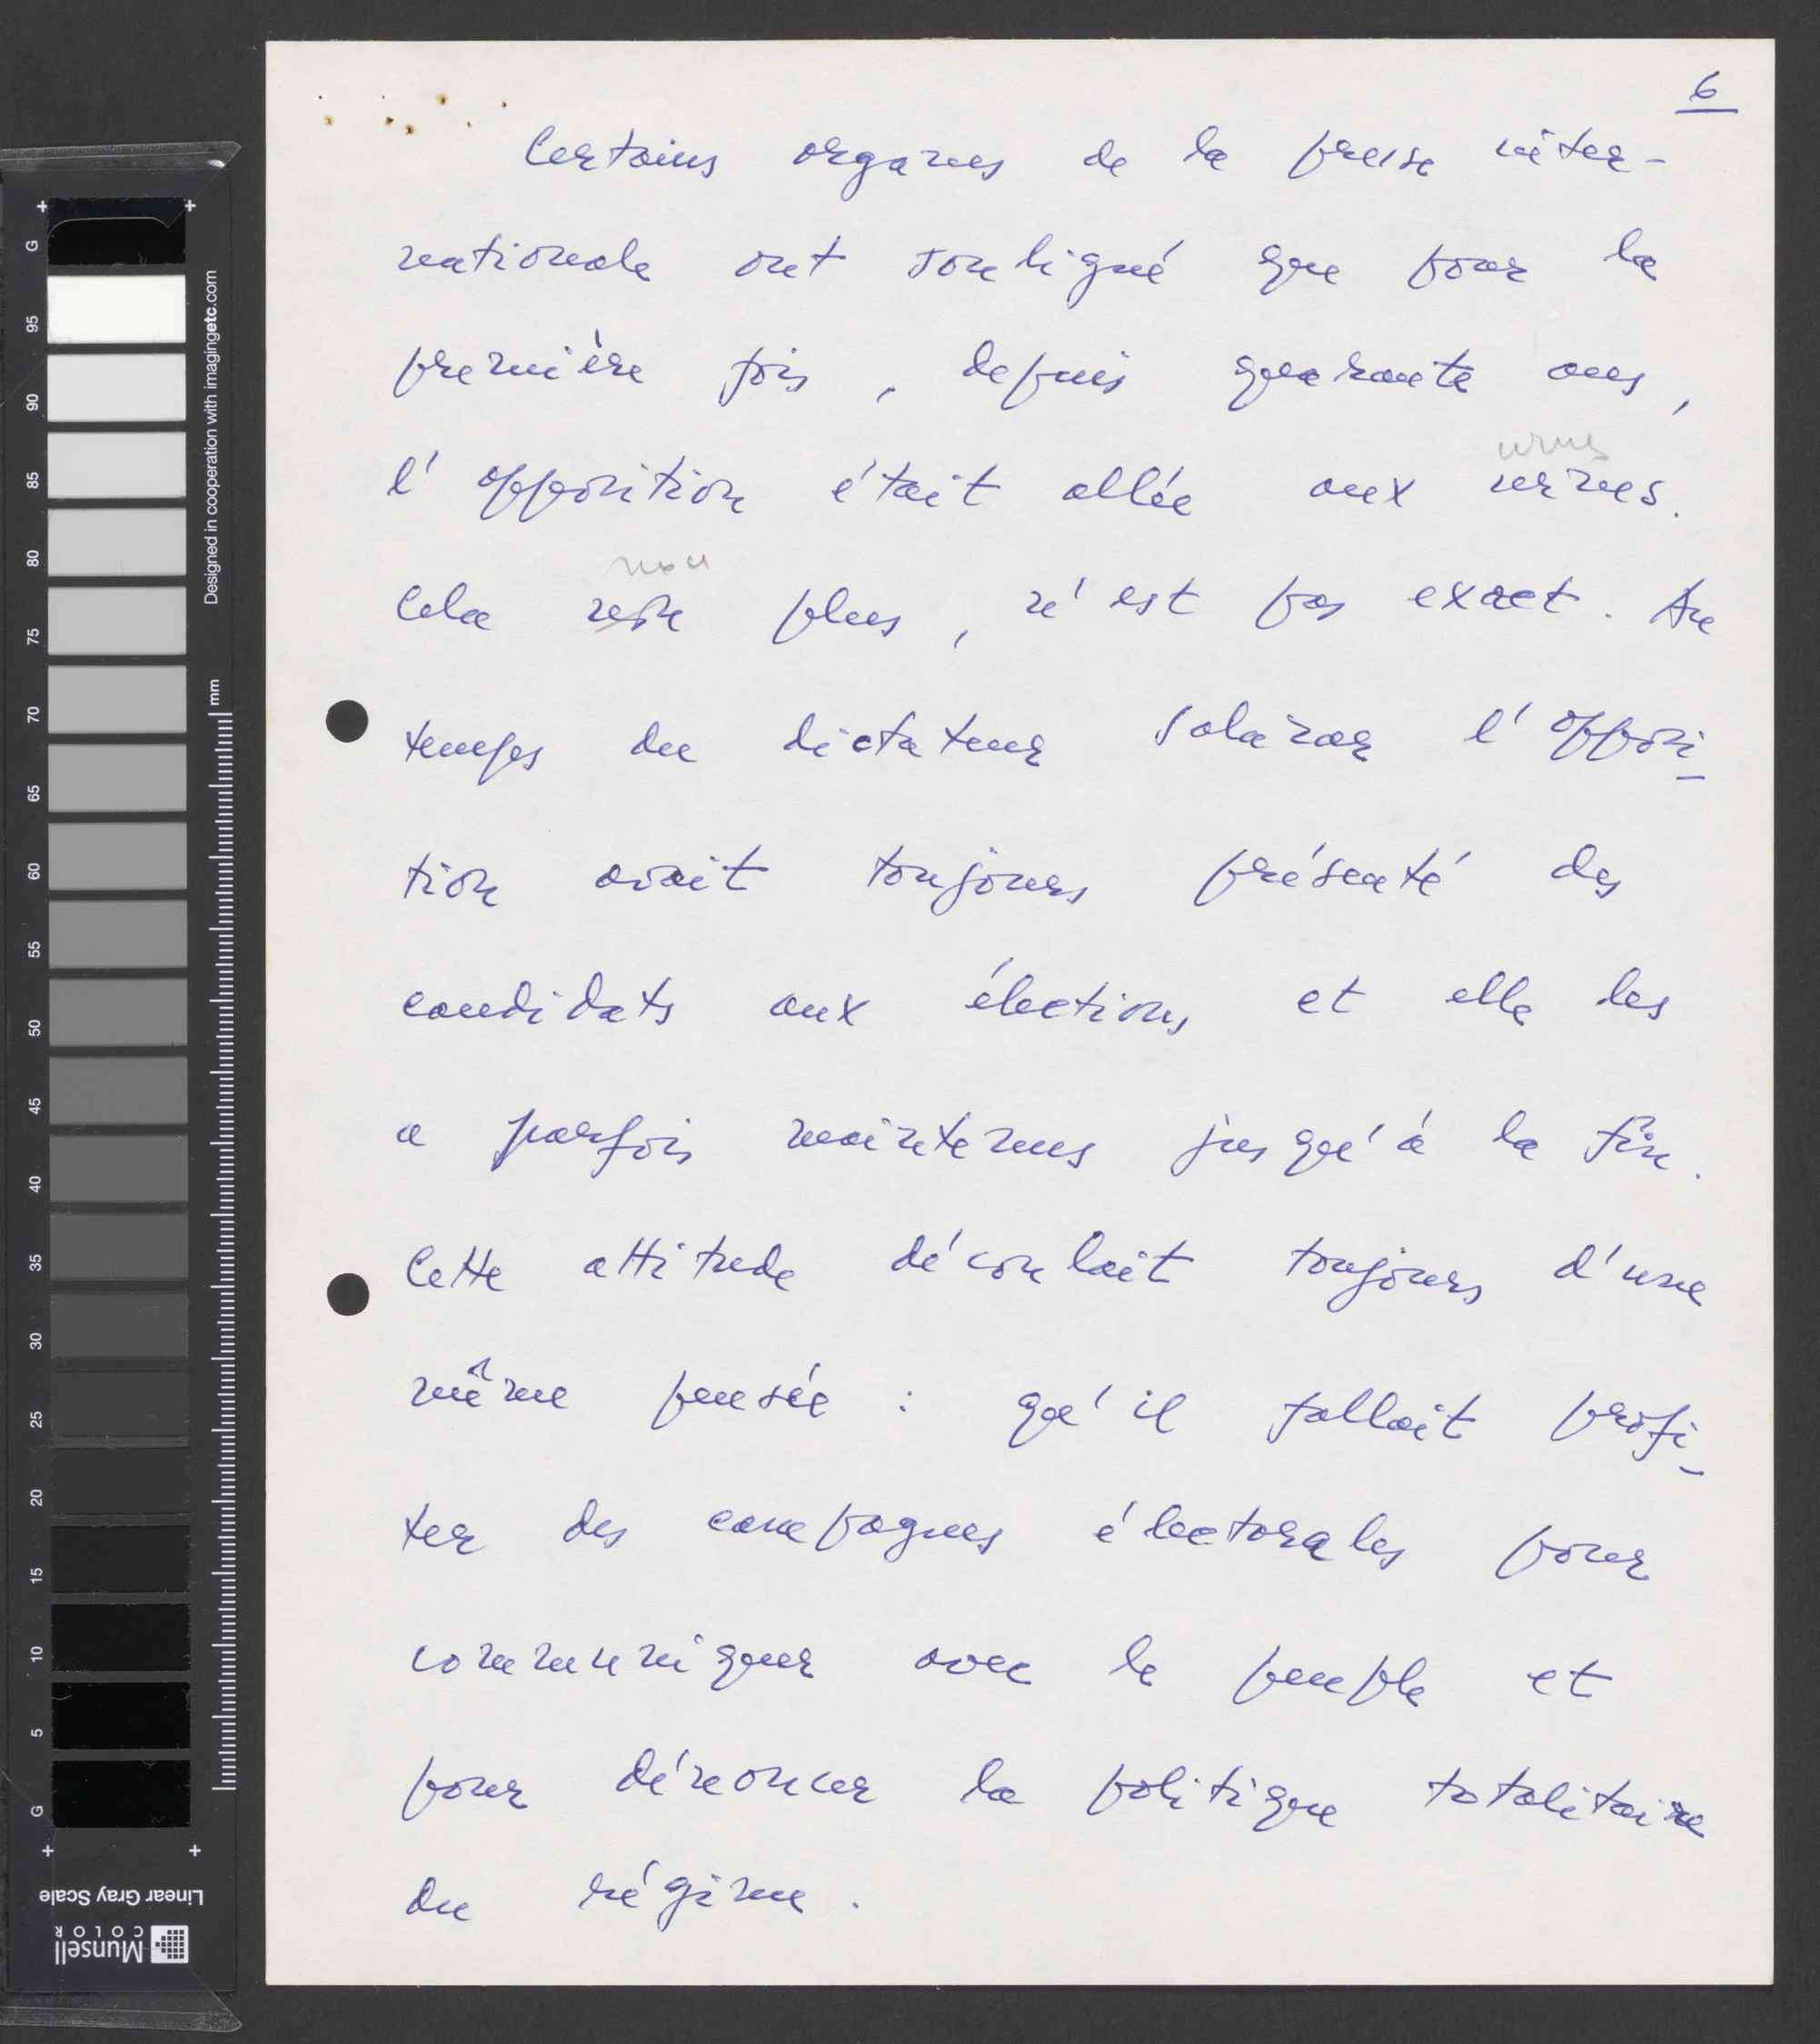 6
Certains organes de la presse inter-
nationale ont souligné que pour la
première fois, depuis quarante ans,
urnes
l'opposition était allée aux urnes.
non
Cela plus, n'est pas exact. Au
temps du dictateur Salazar l'opposi-
tion avait toujours présenté des
candidats aux élections et elle les
a parfois maintenus jusqu'à la fin.
Cette attitude découlait toujours d'une
même pensée : qu'il fallait profi-
ter des campagnes électorales pour
communiquer avec le peuple et
pour dénoncer la politique totalitaire
du régime.
G
95
90
85
80
75
70
65
60
55
50
45
40
35
30
25
20
15
10
5
G
mm
Designed in cooperation with imagingetc.com
Linear Gray Scale
Munsell
COLOR